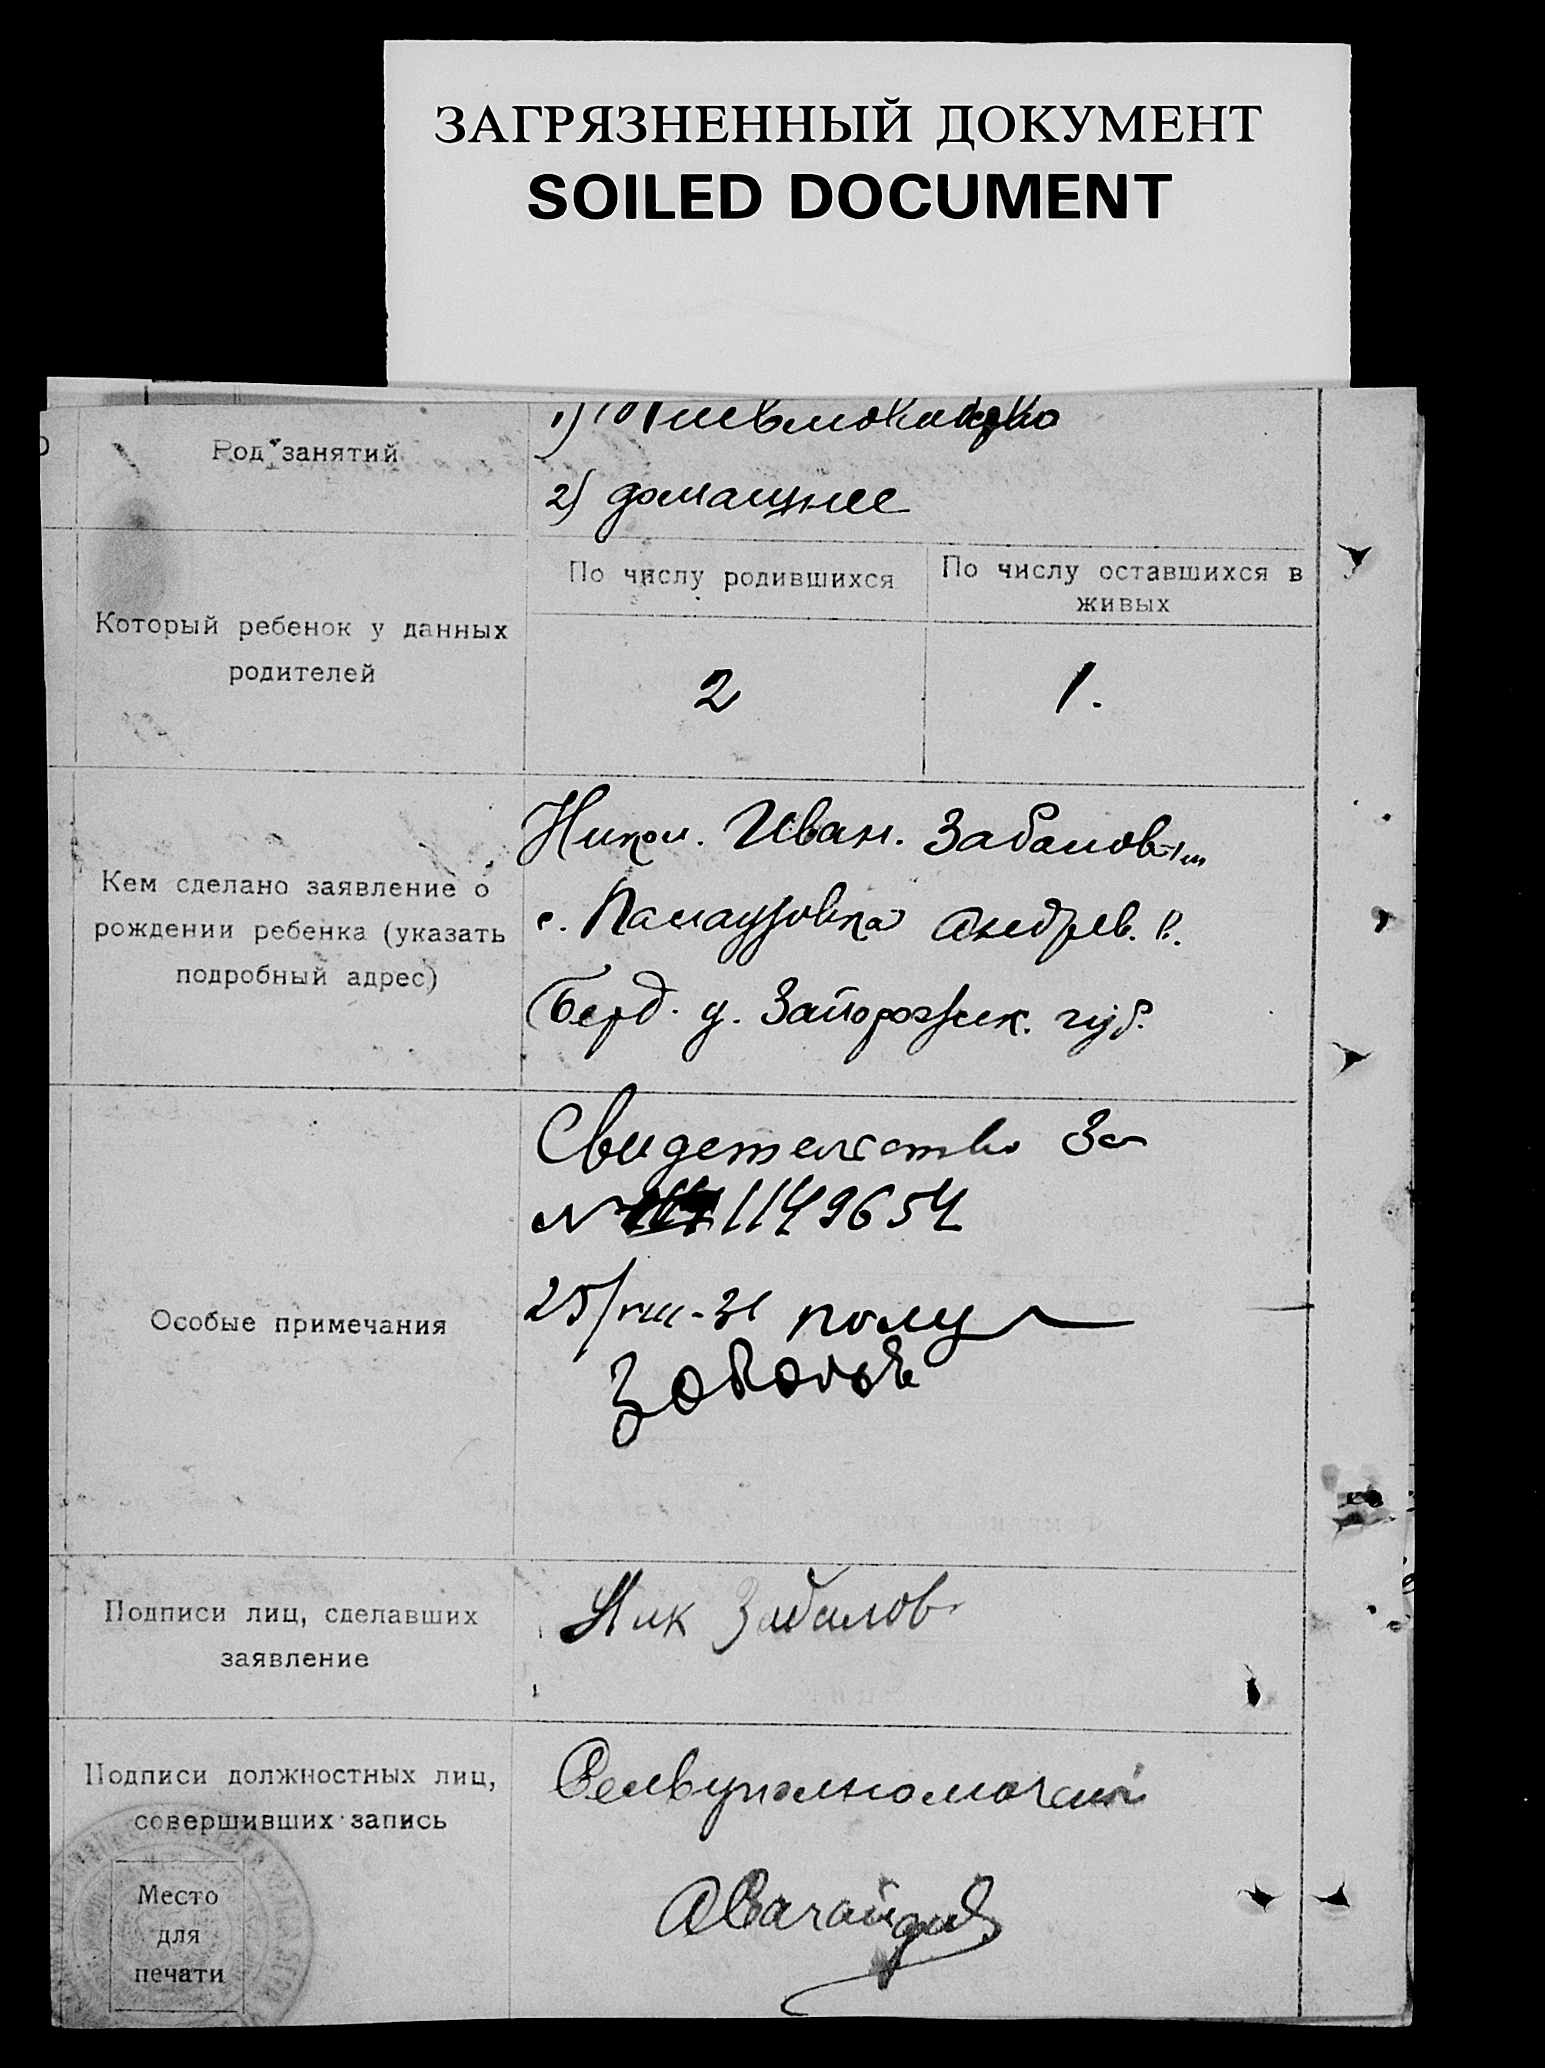 ЗАГРЯЗНЕННЫЙ ДОКУМЕНТ
SOILED DOCUMENT
Род занятий
1)
2) домашнее
Который ребенок у данных
родителей
По числу родившихся
По числу оставшихся в
живых
2
1.
Кем сделано заявление о
рождении ребенка (указать
подробный адрес)
Никол. Иван. Забалов
с. Андрев. р.
Берд. у. Запорожск. губ.
Особые примечания
Свидетельство За
№ 1149654
25/VIII-31 получ
Подписи лиц, сделавших
заявление
Ник Забалов
Подписи должностных лиц,
совершивших запись
Место
для
печати